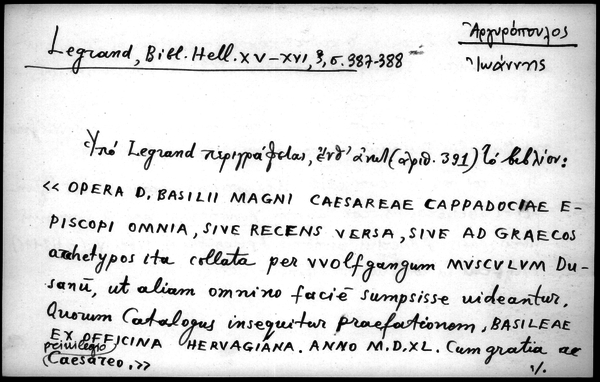 Ἀργυρόπουλος
Ἰωάννης
Legrand, Bibl. Hell. XV–XVI, 3, σ. 387-388
Ὑπὸ Legrand περιγράφεται, ἔνθ' ἀνωτ. (ἀριθ. 391) τὸ βιβλίον:
« OPERA D. BASILII MAGNI CAESAREAE CAPPADOCIAE E-
PISCOPI OMNIA, SIVE RECENS VERSA, SIVE AD GRAECOS
archetypos ita collata per VVolfgangum MVSCVLVM Du-
sanū, ut aliam omnino faciē sumpsisse uideantur.
Quorum Catalogus insequitur praefationem, BASILEAE
EX OFFICINA HERVAGIANA. ANNO M.D.XL. Cum gratia ac
priuilegio
Caesareo.»
./.